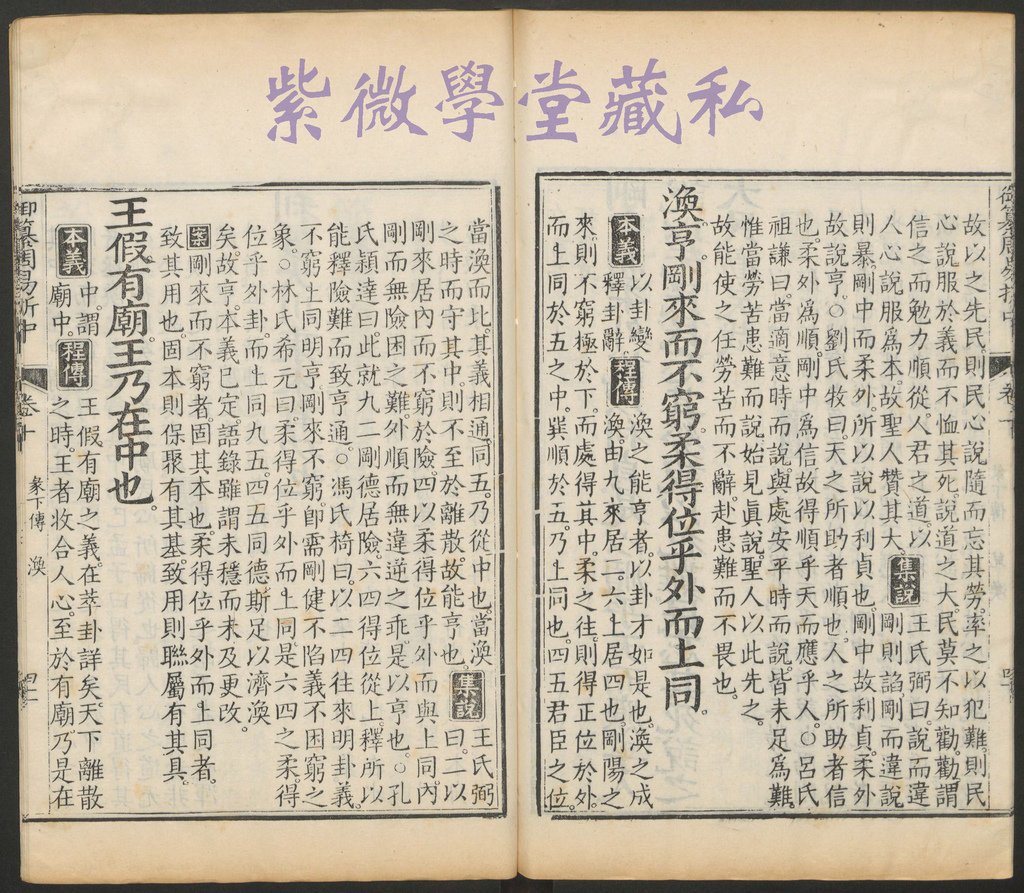 紫微學堂藏私
故以之先民則民心說隨而忘其勞率之以犯難則民
心說服於義而不恤其死說道之大民莫不知勸勸謂
信之而勉力順從人君之道以
人心說服為本故聖人贊其大
集說
王氏弼曰說而違
剛則諂剛而違說
則暴剛中而柔外所以說以利貞也剛中故利貞柔外
故說亨○劉氏牧曰天之所助者順也人之所助者信
也柔外為順剛中為信故得順乎天而應乎人○呂氏
祖謙曰當適意時而說與處安平時而說皆未足為難
惟當勞苦患難而說始見真說聖人以此先之
故能使之任勞苦而不辭赴患難而不畏也
渙亨剛來而不窮柔得位乎外而上同
本義
以卦變
釋卦辭
程傳
渙之能亨者以卦才如是也渙之成
渙由九來居二六上居四也剛陽之
來則不窮極於下而處得其中柔之往則得正位於外
而上同於五之中巽順於五乃上同也四五君臣之位
當渙而比其義相通同五乃從中也當渙
之時而守其中則不至於離散故能亨也
集說
王氏弼
曰二以
剛來居內而不窮於險四以柔得位乎外而與上同內
剛而無險困之難外順而無違逆之乖是以亨也○孔
氏穎達曰此就九二剛德居險六四得位從上釋所以
能釋險難而致亨通○馮氏椅曰以二四往來明卦義
不窮上同明亨剛來不窮即需剛健不陷義不困窮之
象○林氏希元曰柔得位乎外而上同是六四之柔得
位乎外卦而上同九五四五同德斯足以濟渙
矣故亨本義已定語錄雖謂未穩而未及更改
案剛來而不窮者固其本也柔得位乎外而上同者
致其用也固本則保聚有其基致用則聯屬有其具
王假有廟王乃在中也
本義
中謂
廟中
程傳
王假有廟之義在萃卦詳矣天下離散
之時王者收合人心至於有廟乃是在
御纂周易折中
卷十
彖下傳 渙